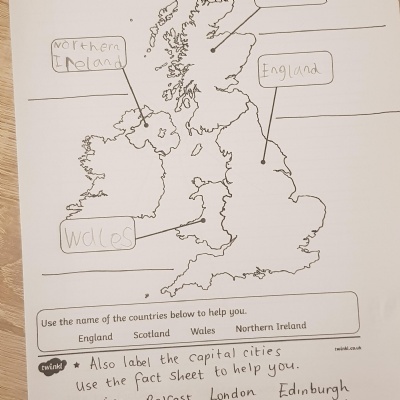 Northern
Ireland
England
Wales
Use the name of the countries below to help you.
England Scotland Wales Northern Ireland
twinkl
twinkl.co.uk
* Also label the capital cities
Use the fact sheet to help you.
Belfast London Edinburgh